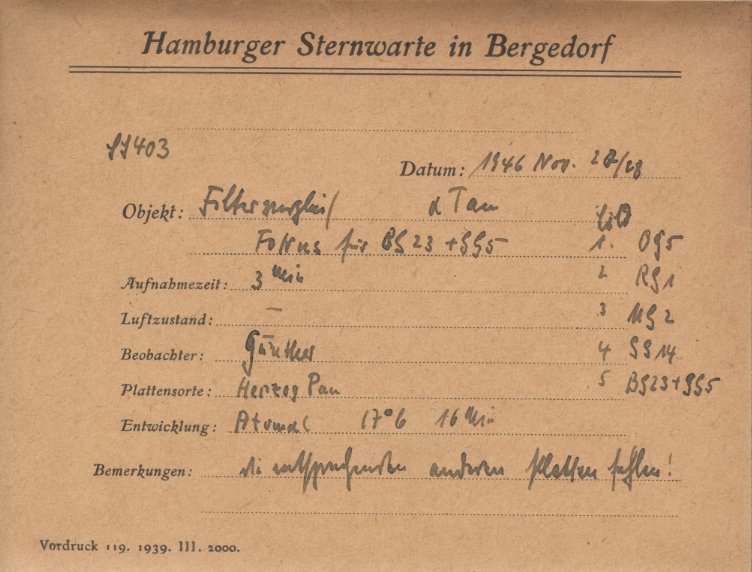 Hamburger Sternwarte in Bergedorf
Datum: 1946 Nov. 27/28
Objekt: Filtervergleich α Tau Bild
Fokus für BG23+GG5 1. OG5
Aufnahmezeit: 3 min 2 RG1
Luftzustand: – 3 UG2
Beobachter: Günther 4 GG14
Plattensorte: Herzog Pan 5 BG23+GG5
Entwicklung: Atomal 17°6 16 Min
Bemerkungen: die entsprechenden anderen Platten fehlen!
Vordruck 119. 1939. III. 2000.